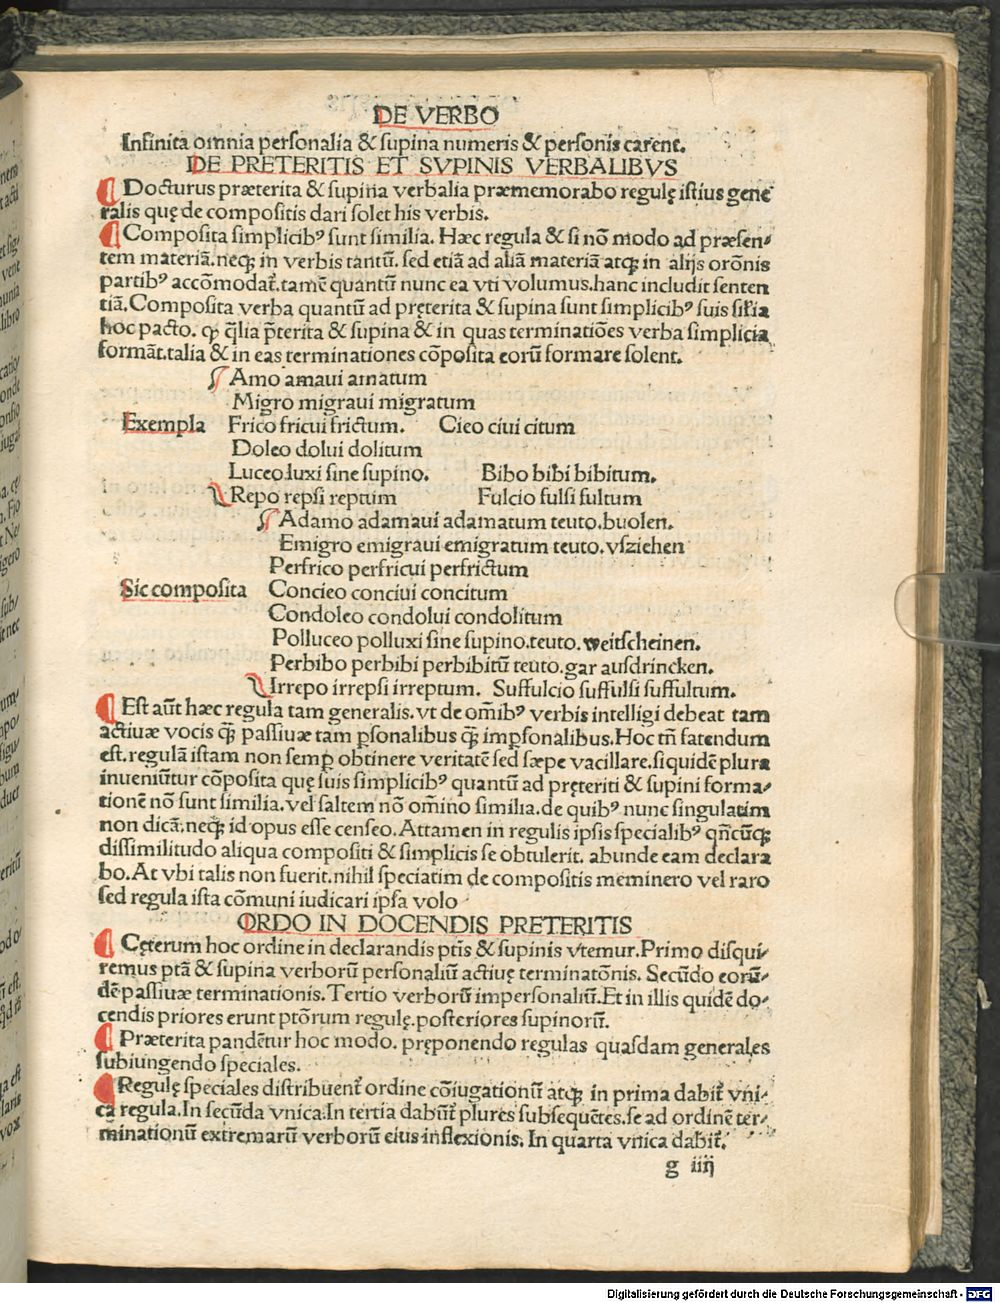 DE VERBO
Infinita omnia personalia & supina numeris & personis carent.
DE PRETERITIS ET SVPINIS VERBALIBVS
Docturus præterita & supina verbalia præmemorabo regulę istius gene
ralis quę de compositis dari solet his verbis.
Composita simplicibꝰ sunt similia. Hæc regula & si nō modo ad præsen-
tem materiā. neqꝫ in verbis tantū. sed etiā ad aliā materiā atqꝫ in alijs orōnis
partibꝰ accōmodat̄. tamē quantū nunc ea vti volumus. hanc includit senten
tiā. Composita verba quantū ad pręterita & supina sunt simplicibꝰ suis sil̄ia
hoc pacto. ꝙ q̄lia p̄terita & supina & in quas terminatiōes verba simplicia
formāt. talia & in eas terminationes cōposita eorū formare solent.
Amo amaui amatum
Migro migraui migratum
Exempla Frico fricui frictum. Cieo ciui citum
Doleo dolui dolitum
Luceo luxi sine supino. Bibo bibi bibitum.
Repo repsi reptum Fulcio fulsi fultum
Adamo adamaui adamatum teuto. buolen.
Emigro emigraui emigratum teuto. vsziehen
Perfrico perfricui perfrictum
Sic composita Concieo conciui concitum
Condoleo condolui condolitum
Polluceo polluxi sine supino. teuto. weitscheinen.
Perbibo perbibi perbibitū teuto. gar ausdrincken.
Irrepo irrepsi irreptum. Suffulcio suffulsi suffultum.
Est aūt hæc regula tam generalis. vt de om̄ibꝰ verbis intelligi debeat tam
actiuæ vocis qꝫ̄ passiuæ tam ꝑsonalibus qꝫ̄ imꝑsonalibus. Hoc tn̄ fatendum
est. regulā istam non semꝑ obtinere veritatē sed sæpe vacillare. siquidē plura
inueniūtur cōposita quę suis simplicibꝰ quantū ad pręteriti & supini forma-
tionē nō sunt similia. vel saltem nō om̄ino similia. de quibꝰ nunc singulatim
non dicā. neqꝫ id opus esse censeo. Attamen in regulis ipsis specialibꝰ qn̄cūqꝫ
dissimilitudo aliqua compositi & simplicis se obtulerit. abunde eam declara
bo. At vbi talis non fuerit. nihil speciatim de compositis meminero vel raro
sed regula ista cōmuni iudicari ipsa volo
ORDO IN DOCENDIS PRETERITIS
Cęterum hoc ordine in declarandis ptīs & supinis vtemur. Primo disqui-
remus ptā & supina verborū personaliū actiuę terminatōnis. Secūdo eorū-
dē passiuæ terminationis. Tertio verborū impersonaliū. Et in illis quidē do-
cendis priores erunt ptōrum regulę. posteriores supinorū.
Præterita pandētur hoc modo. pręponendo regulas quasdam generales
subiungendo speciales.
Regulę speciales distribuent̄ ordine cōiugationū atqꝫ in prima dabit̄ vni-
ca regula. In secūda vnica. In tertia dabūt̄ plures subsequētes. se ad ordinē ter-
minationū extremarū verborū eius inflexionis. In quarta vnica dabit̄.
g iiij
Digitalisierung gefördert durch die Deutsche Forschungsgemeinschaft - DFG